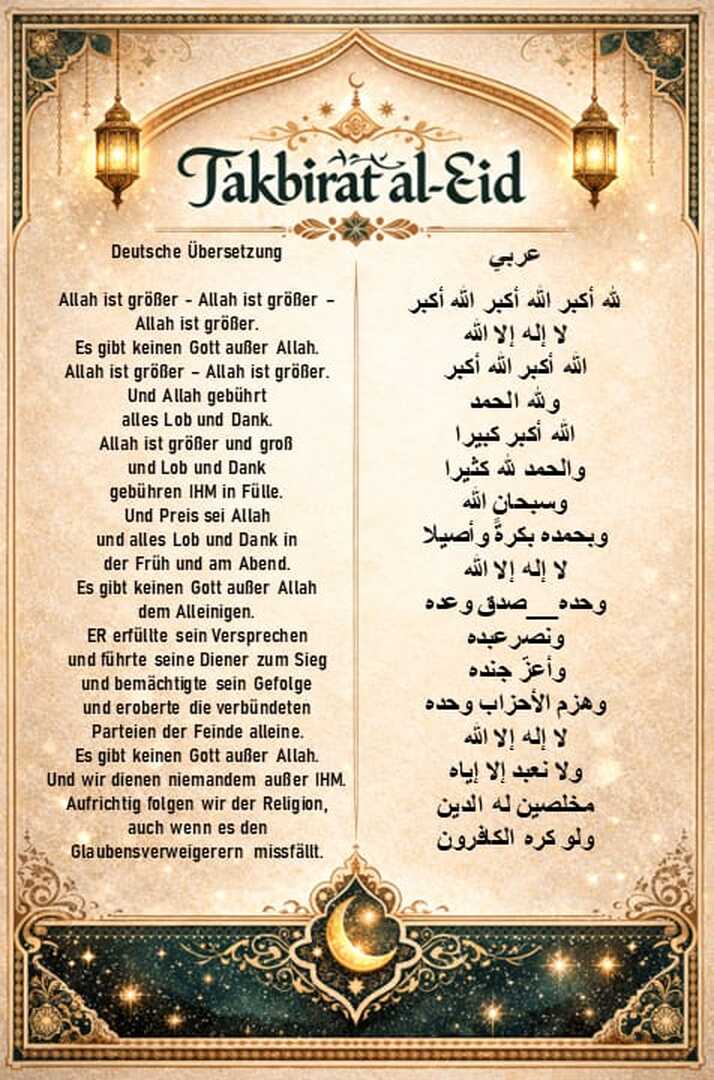 Takbirat al-Eid
Deutsche Übersetzung
Allah ist größer - Allah ist größer –
Allah ist größer.
Es gibt keinen Gott außer Allah.
Allah ist größer – Allah ist größer.
Und Allah gebührt
alles Lob und Dank.
Allah ist größer und groß
und Lob und Dank
gebühren IHM in Fülle.
Und Preis sei Allah
und alles Lob und Dank in
der Früh und am Abend.
Es gibt keinen Gott außer Allah
dem Alleinigen.
ER erfüllte sein Versprechen
und führte seine Diener zum Sieg
und bemächtigte sein Gefolge
und eroberte die verbündeten
Parteien der Feinde alleine.
Es gibt keinen Gott außer Allah.
Und wir dienen niemandem außer IHM.
Aufrichtig folgen wir der Religion,
auch wenn es den
Glaubensverweigerern missfällt.
عربي
لله أكبر الله أكبر الله أكبر
لا إله إلا الله
الله أكبر الله أكبر
ولله الحمد
الله أكبر كبيرا
والحمد لله كثيرا
وسبحان الله
وبحمده بكرةً وأصيلا
لا إله إلا الله
وحده__صدق وعده
ونصر عبده
وأعزّ جنده
وهزم الأحزاب وحده
لا إله إلا الله
ولا نعبد إلا إياه
مخلصين له الدين
ولو كره الكافرون